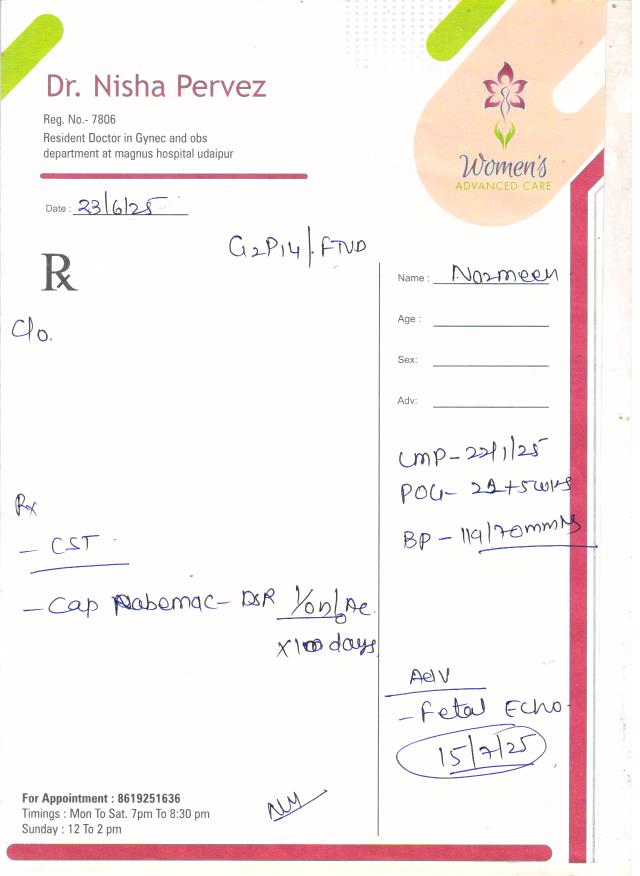 Dr. Nisha Pervez
Reg. No.- 7806
Resident Doctor in Gynec and obs
department at magnus hospital udaipur
Women's
ADVANCED CARE
Date : 23/6/25
G2P1L1/FTVD
Rx
Name : Nazmeen
Age :
Sex:
Adv:
C/o.
LMP - 22/1/25
POG - 21+5wks
BP - 119/70mmHg
Rx
- CST
- Cap Rabemac - DSR 1/OD/AC
x 10 days
Adv
- Fetal Echo
15/7/25
For Appointment : 8619251636
Timings : Mon To Sat. 7pm To 8:30 pm
Sunday : 12 To 2 pm